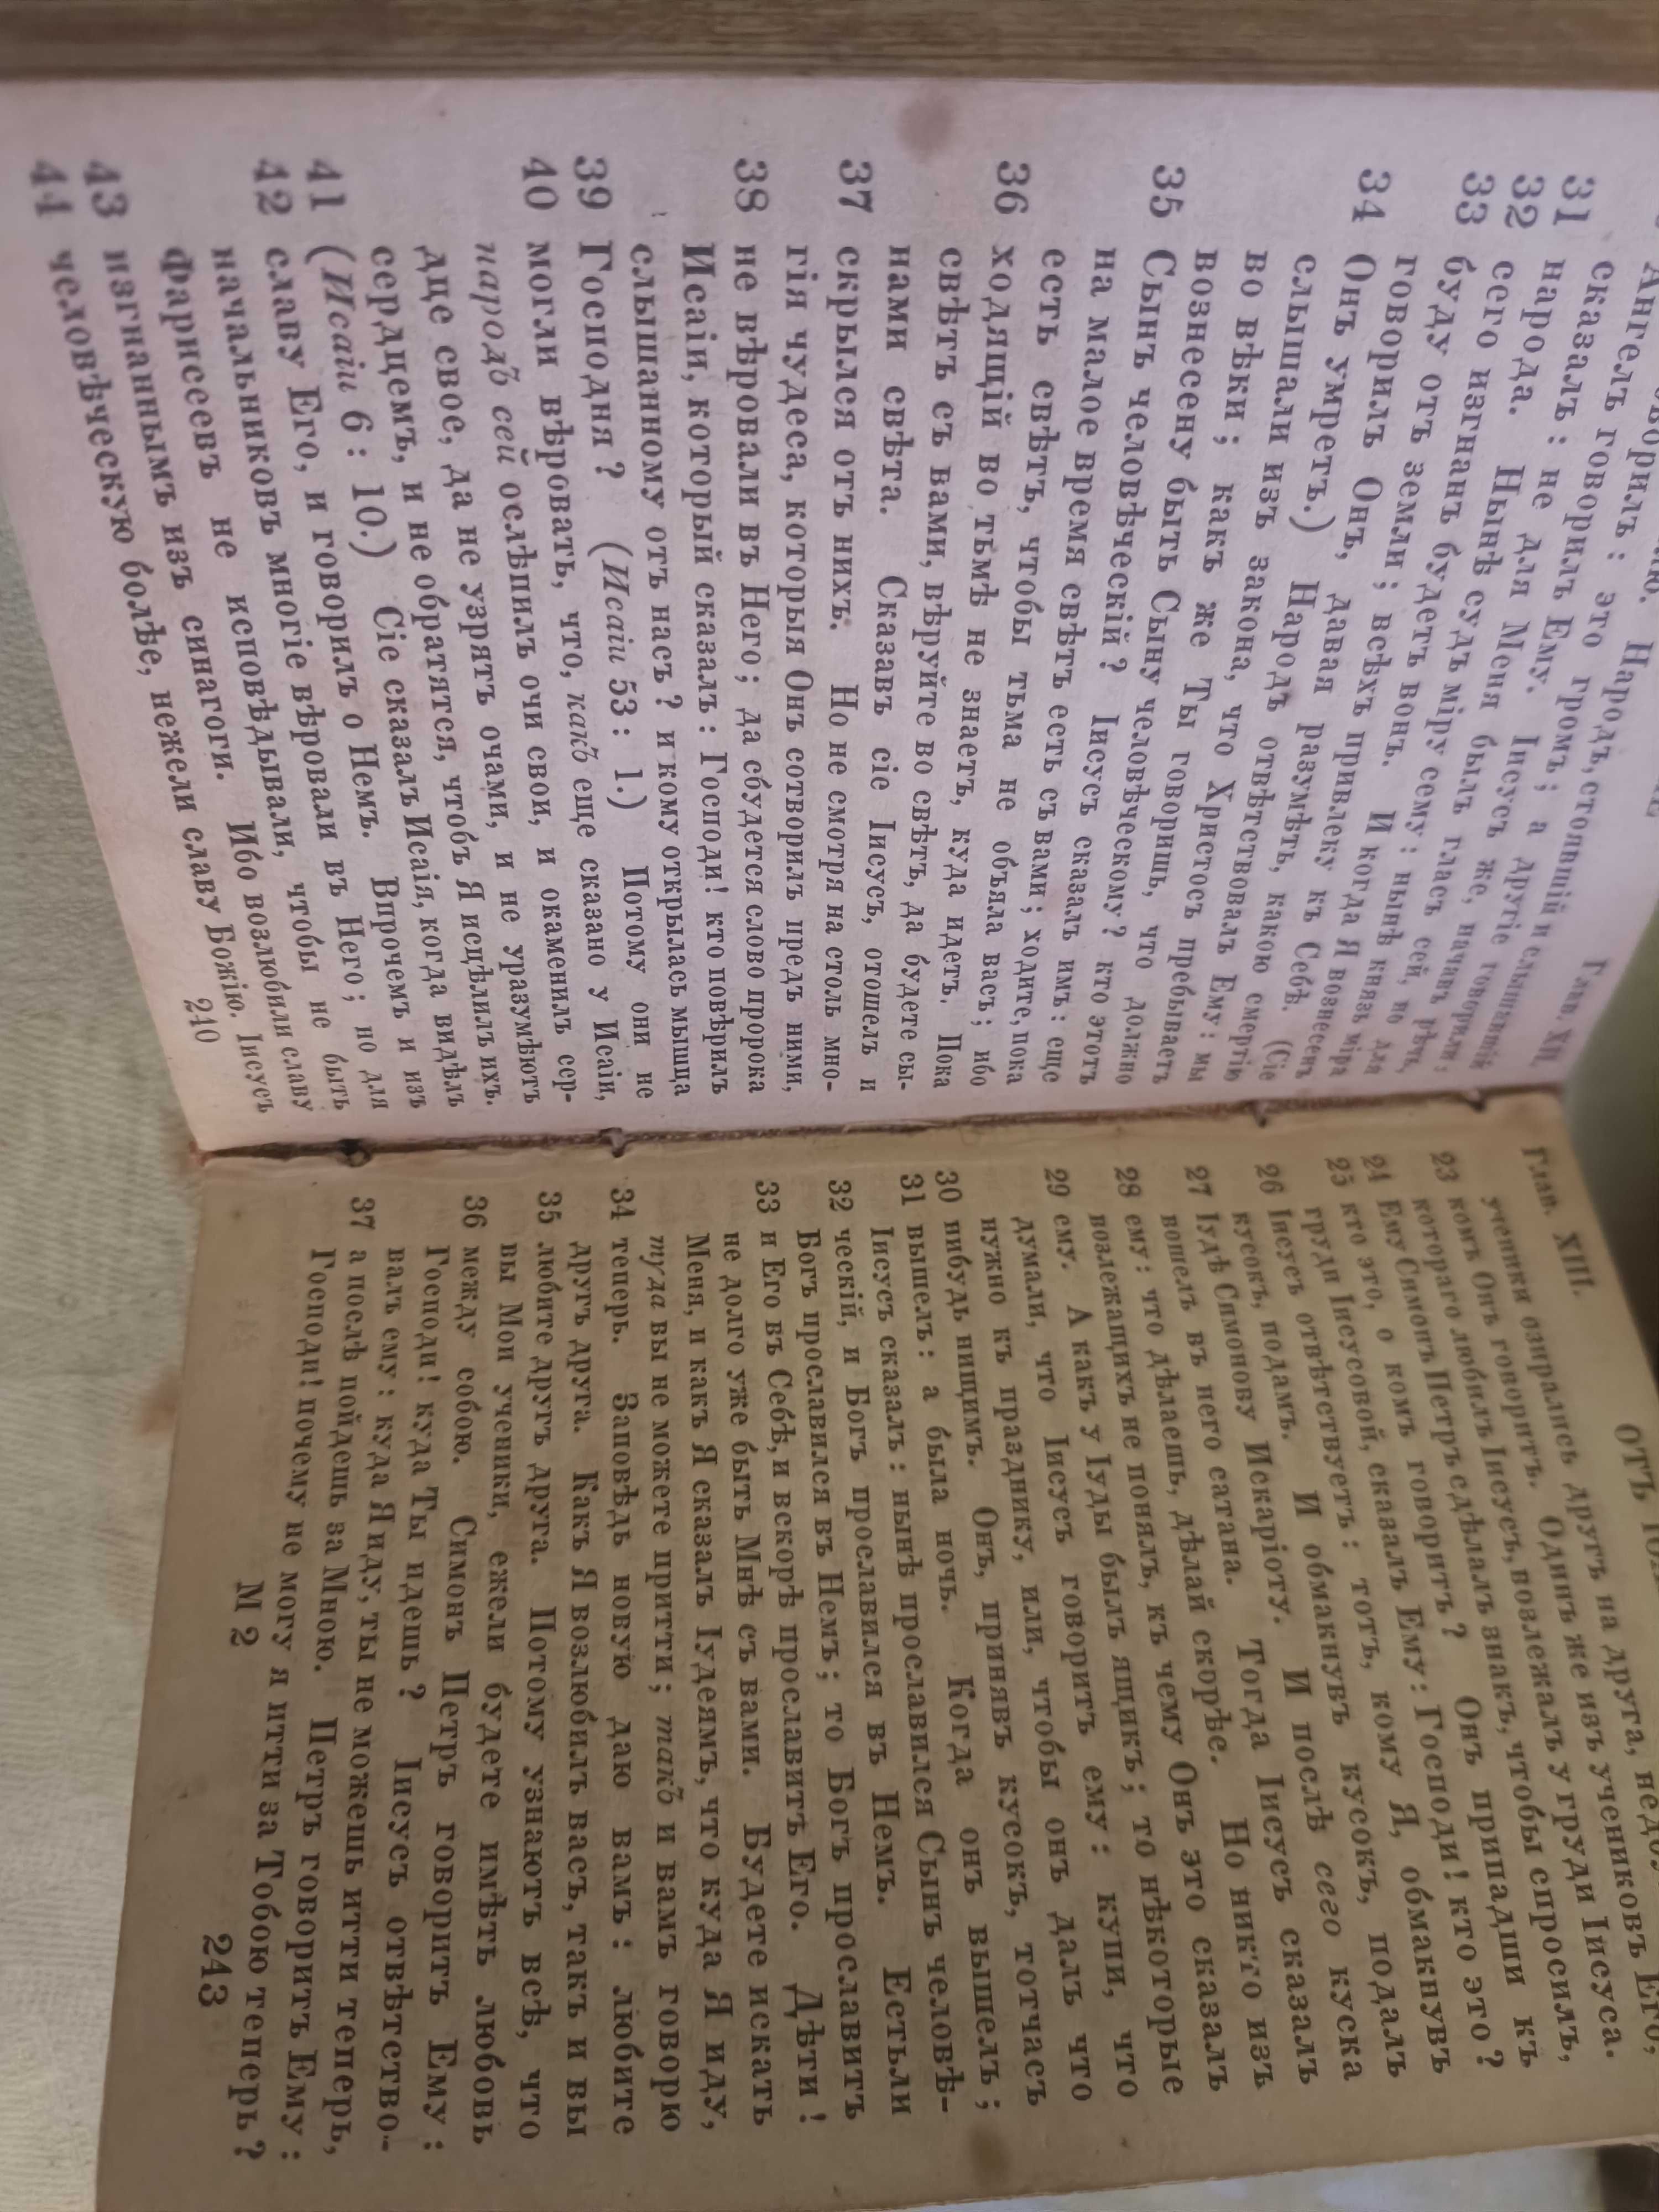 Глав. XII.
сказалъ: Народъ, стоявшій и слышавшій
Ангелъ говорилъ: это громъ; а другіе говорили:
31 сказалъ: не для Меня былъ гласъ сей, но для
32 народа. Нынѣ судъ міру сему: нынѣ князь міра
33 сего изгнанъ будетъ вонъ. И когда Я вознесенъ
буду отъ земли; всѣхъ привлеку къ Себѣ. (Сіе
говорилъ Онъ, давая разумѣть, какою смертію
34 Онъ умретъ.) Народъ отвѣтствовалъ Ему: мы
слышали изъ закона, что Христосъ пребываетъ
во вѣки; какъ же Ты говоришь, что должно
вознесену быть Сыну человѣческому? кто этотъ
35 Сынъ человѣческій? Іисусъ сказалъ имъ: еще
на малое время свѣтъ есть съ вами; ходите, пока
есть свѣтъ, чтобы тьма не объяла васъ; ибо
36 ходящій во тьмѣ не знаетъ, куда идетъ. Пока
свѣтъ съ вами, вѣруйте во свѣтъ, да будете сы-
нами свѣта. Сказавъ сіе Іисусъ, отошелъ и
37 скрылся отъ нихъ. Но не смотря на столь мно-
гія чудеса, которыя Онъ сотворилъ предъ ними,
38 не вѣровали въ Него; да сбудется слово пророка
Исаіи, который сказалъ: Господи! кто повѣрилъ
слышанному отъ насъ? и кому открылась мышца
39 Господня? (Исаіи 53: 1.) Потому они не
40 могли вѣровать, что, какъ еще сказано у Исаіи,
народъ сей ослѣпилъ очи свои, и окаменилъ сер-
дце свое, да не узрятъ очами, и не уразумѣютъ
сердцемъ, и не обратятся, чтобъ Я исцѣлилъ ихъ.
41 (Исаіи 6: 10.) Сіе сказалъ Исаія, когда видѣлъ
42 славу Его, и говорилъ о Немъ. Впрочемъ и изъ
начальниковъ многіе вѣровали въ Него; но для
Фарисеевъ не исповѣдывали, чтобы не быть
43 изгнаннымъ изъ синагоги. Ибо возлюбили славу
44 человѣческую болѣе, нежели славу Божію. Іисусъ
240
Глав. XIII.
ОТЪ
ученики озирались другъ на друга,
23 комъ Онъ говоритъ. Одинъ же изъ учениковъ Его,
котораго любилъ Іисусъ, возлежалъ у груди Іисуса.
24 Ему Симонъ Петръ сдѣлалъ знакъ, чтобы спросилъ,
25 кто это, о комъ говоритъ? Онъ припадши къ
груди Іисусовой, сказалъ Ему: Господи! кто это?
26 Іисусъ отвѣтствуетъ: тотъ, кому Я, обмакнувъ
кусокъ, подамъ. И обмакнувъ кусокъ, подалъ
27 Іудѣ Симонову Искаріоту. И послѣ сего куска
вошелъ въ него сатана. Тогда Іисусъ сказалъ
28 ему: что дѣлаешь, дѣлай скорѣе. Но никто изъ
возлежащихъ не понялъ, къ чему Онъ это сказалъ
29 ему. А какъ у Іуды былъ ящикъ; то нѣкоторые
думали, что Іисусъ говоритъ ему: купи, что
нужно къ празднику, или, чтобы онъ далъ что
30 нибудь нищимъ. Онъ, принявъ кусокъ, тотчасъ
31 вышелъ: а была ночь. Когда онъ вышелъ;
Іисусъ сказалъ: нынѣ прославился Сынъ человѣ-
32 ческій, и Богъ прославился въ Немъ. Естьли
Богъ прославился въ Немъ; то Богъ прославитъ
33 и Его въ Себѣ, и вскорѣ прославитъ Его. Дѣти!
не долго уже быть Мнѣ съ вами. Будете искать
Меня, и какъ Я сказалъ Іудеямъ, что куда Я иду,
туда вы не можете притти; такъ и вамъ говорю
34 теперь. Заповѣдь новую даю вамъ: любите
другъ друга. Какъ Я возлюбилъ васъ, такъ и вы
35 любите другъ друга. Потому узнаютъ всѣ, что
вы Мои ученики, ежели будете имѣть любовь
36 между собою. Симонъ Петръ говоритъ Ему:
Господи! куда Ты идешь? Іисусъ отвѣтство-
валъ ему: куда Я иду, ты не можешь итти теперь,
37 а послѣ пойдешь за Мною. Петръ говоритъ Ему:
Господи! почему не могу я итти за Тобою теперь?
М 2
243